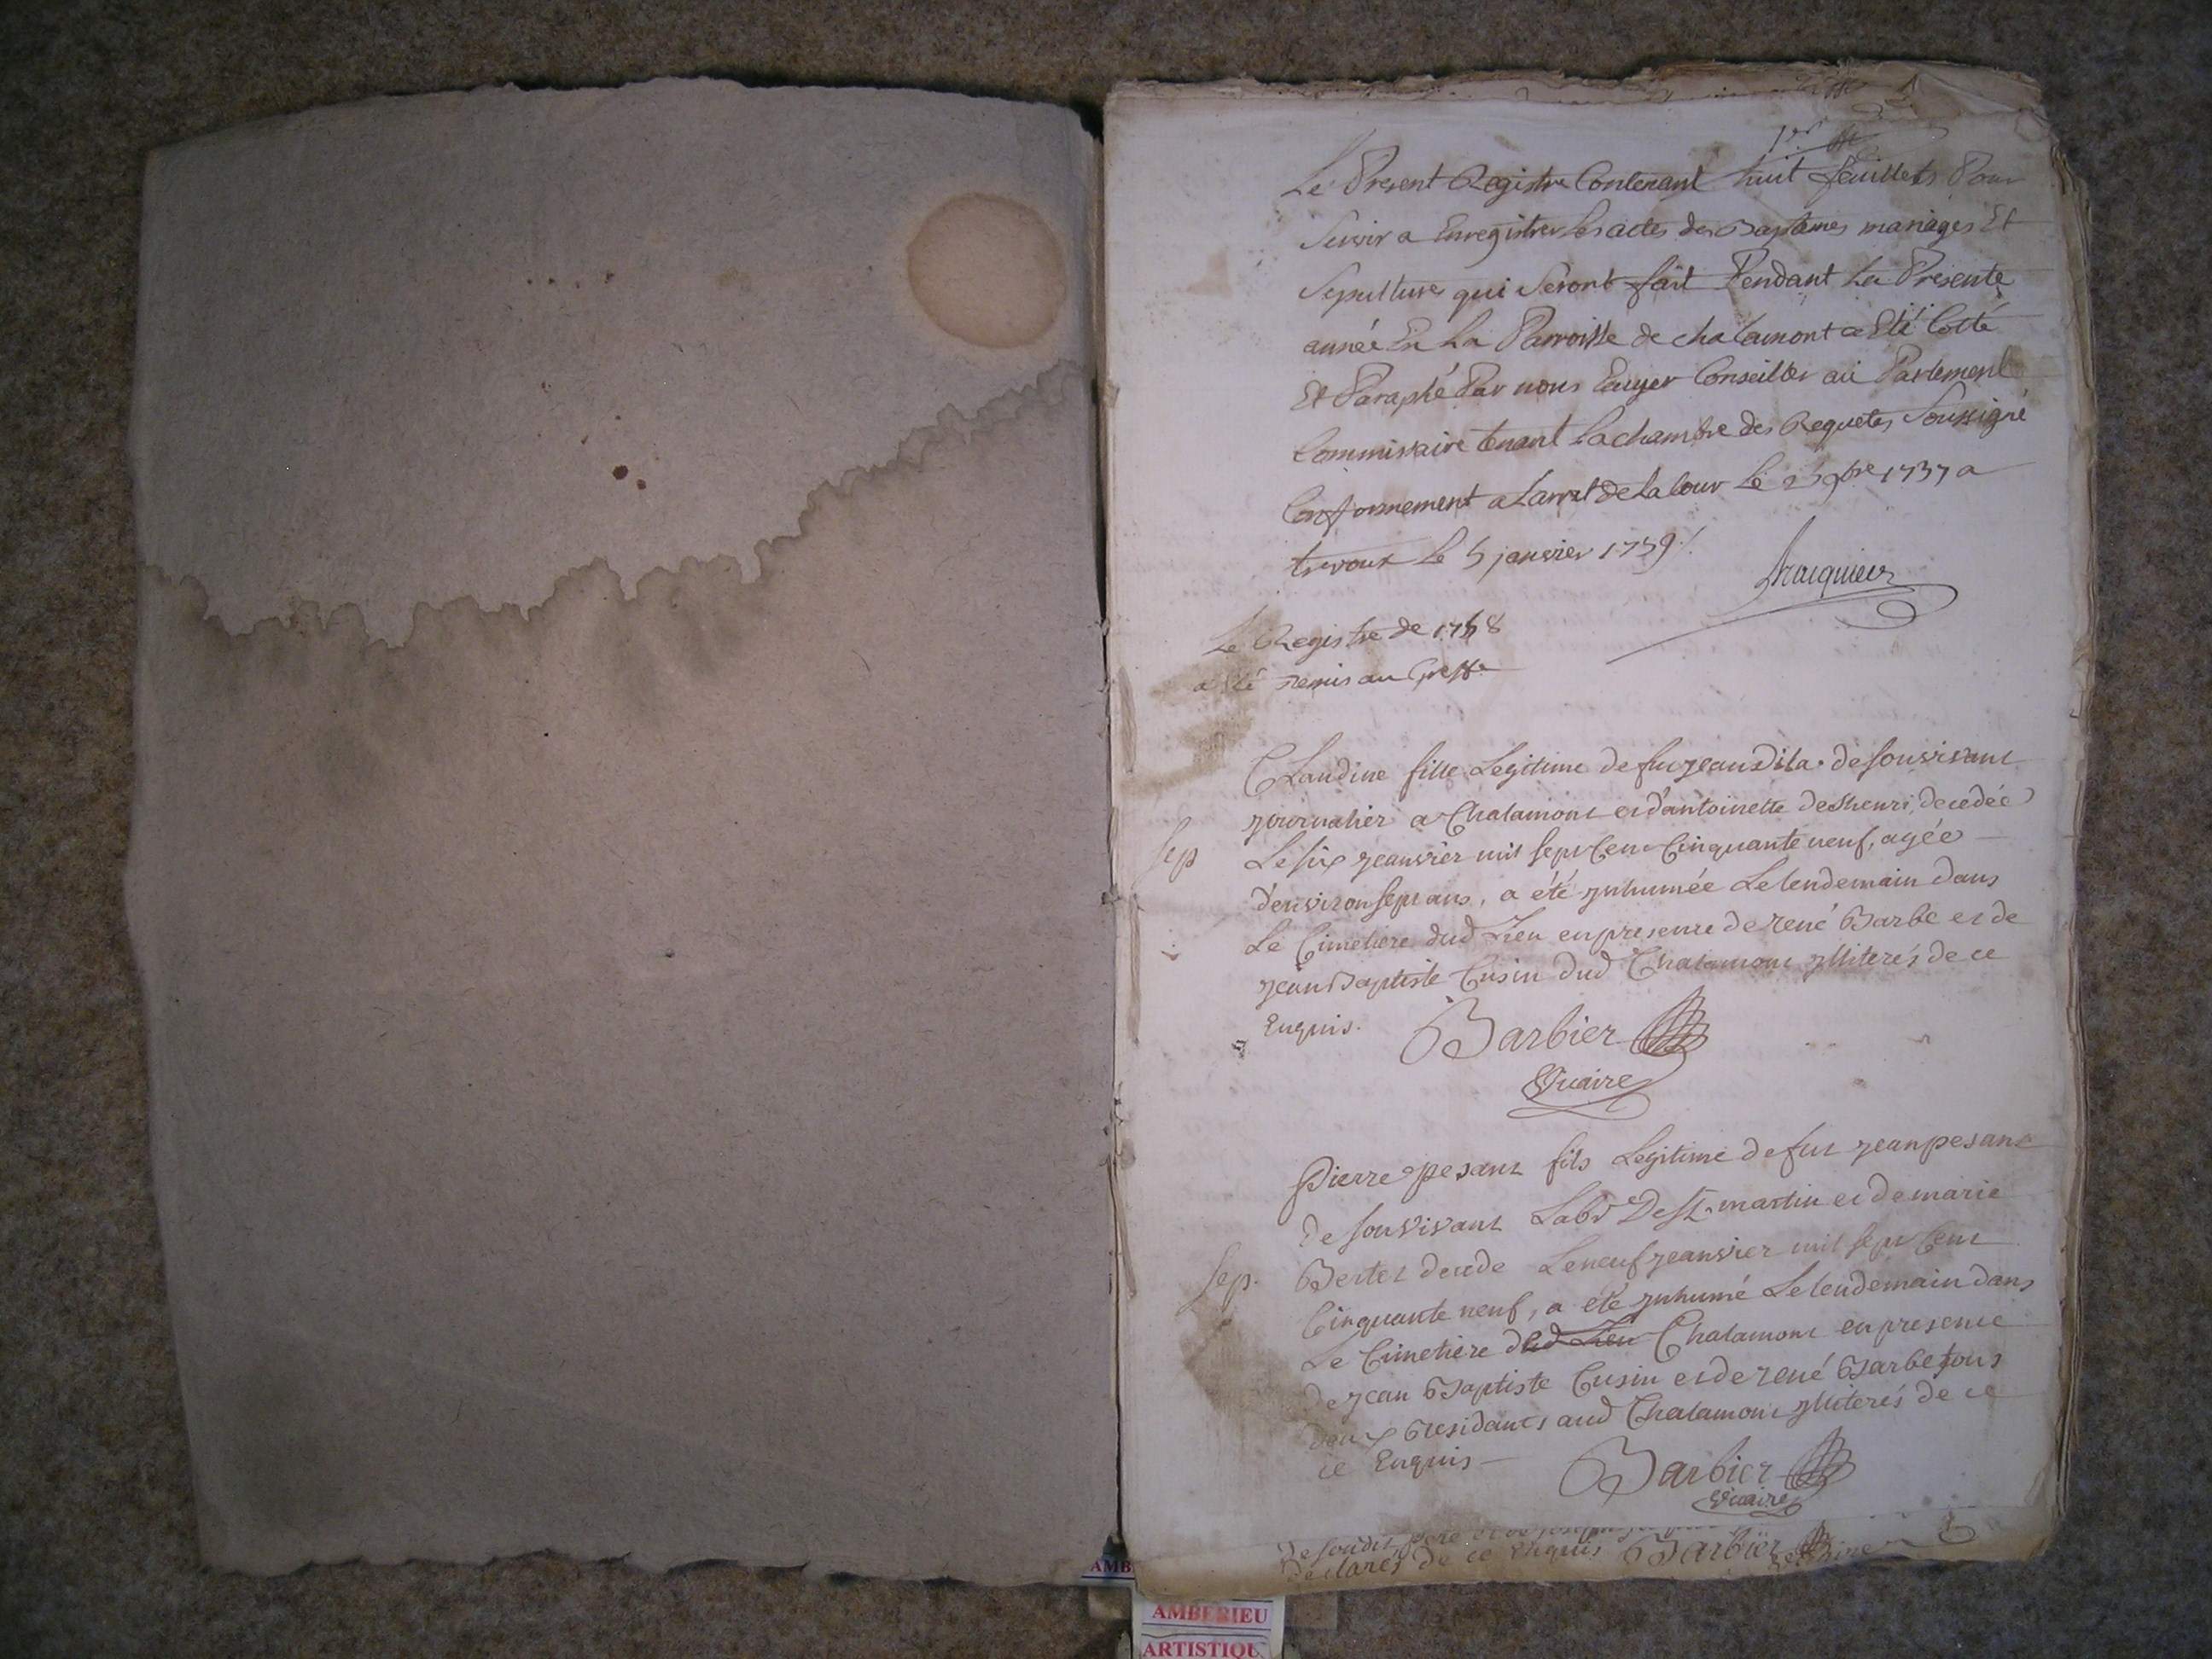 1er
Le Present Registre Contenant huit feuillets Pour
Servir a Enregistrer les actes des Baptêmes mariages Et
Sepultures qui Seront fait Pendant La Presente
année En La Parroisse de chalamont a Eté Cotté
Et Paraphé Par nous Ecuyer Conseiller au Parlement
Commissaire tenant la chambre des Requetes Soussigné
Conformement a Larret de la Cour Le 9bre 1737 a
trevoux Le 5 janvier 1759
Le Registre de 1758
a Eté remis au Greffe
Claudine fille Legitime de feu jean de son vivant
journalier a Chalamont et d'antoinette decedée
Sep
Le six jeanvier mil sept Cent Cinquante neuf, agée
d'environ sept ans, a été inhumée Le lendemain dans
Le Cimetiere dud Lieu en presence de rené Barbe et de
jean Baptiste Cusin dud Chalamont illiterés de ce
Enquis.
Barbier
Vicaire
Pierre pesant fils Legitime de feu jean pesant
de son vivant Labr De St. martin et de marie
Sep.
Bertet decede Le neuf jeanvier mil sept Cent
Cinquante neuf, a été inhumé Le lendemain dans
Le Cimetiere dud Lieu Chalamont en presence
de jean Baptiste Cusin et de rené Barbe tous
deux residants aud Chalamont illiterés de ce
ce Enquis
Barbier
Vicaire
declarés de ce Enquis Barbier
AMB
AMBERIEU
ARTISTIQU